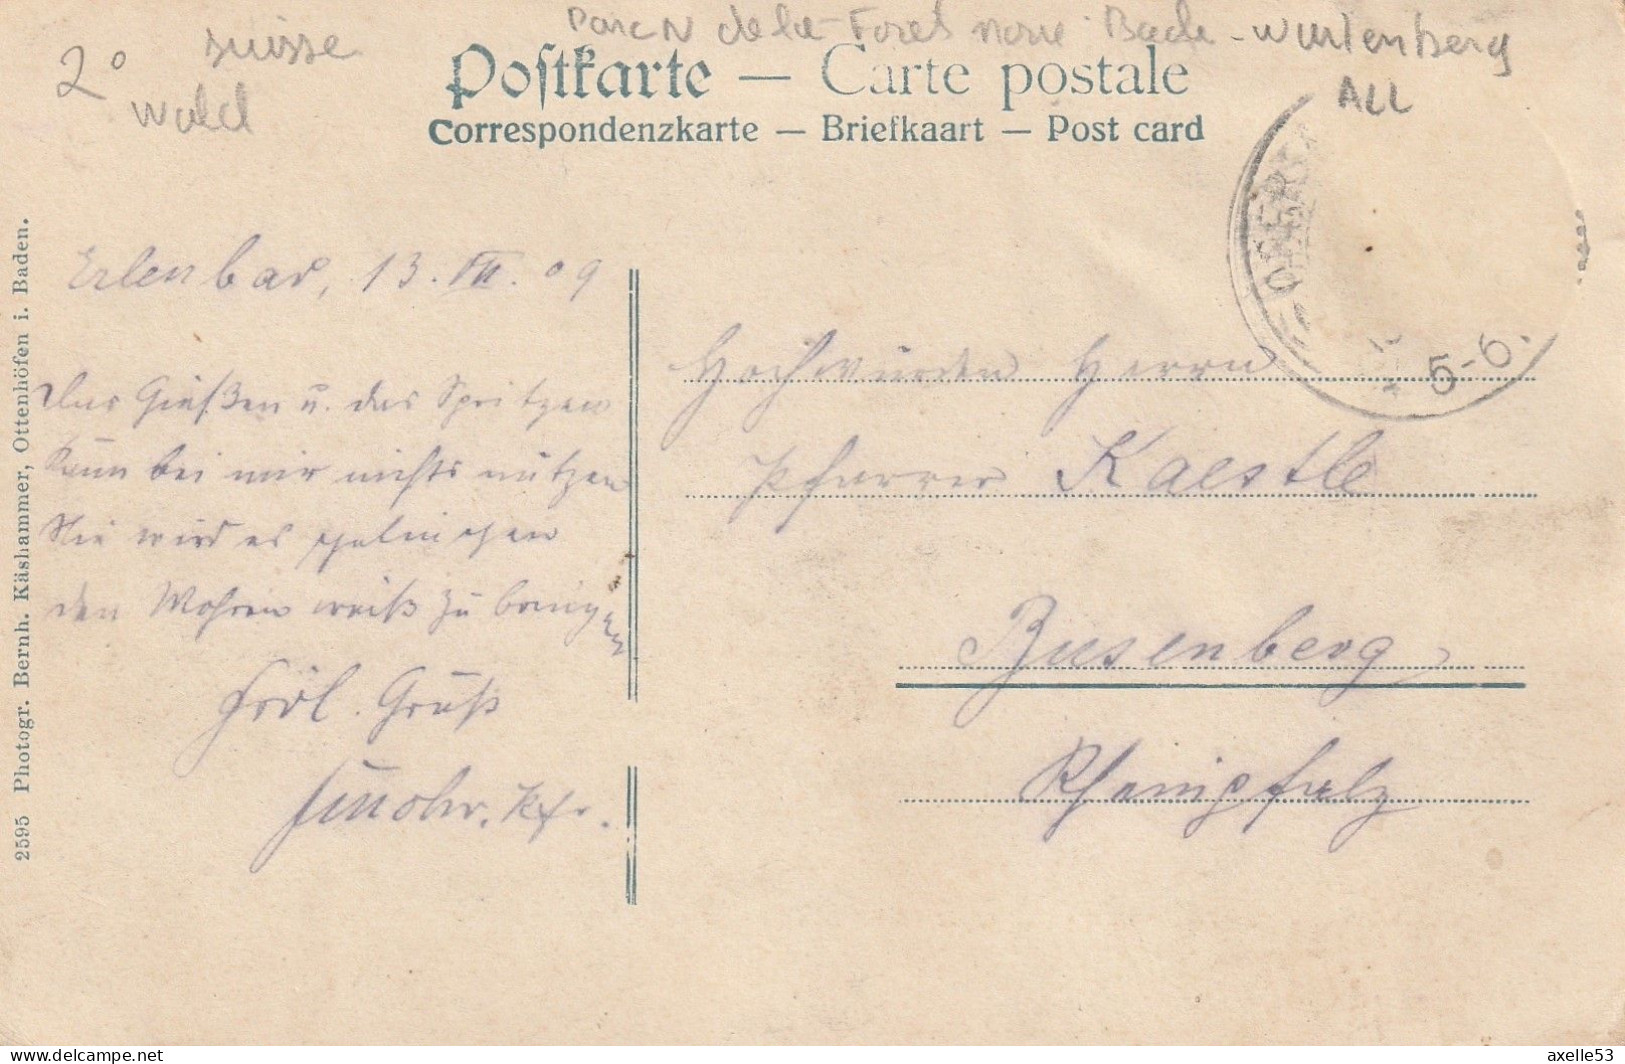 Parc N de la Foret noire Bade-Wurtenberg
ALL
2° suisse
Wald
Postkarte — Carte postale
Correspondenzkarte — Briefkaart — Post card
OBER
5-6.
2595 Photogr. Bernh. Käshammer, Ottenhöfen i. Baden.
Erlenbad, 13. VII. 09
Das Gießen u. das Spritzen
kann bei mir nichts nützen
Nie wird es gelingen
den Mohren weiß zu bringen
Frdl. Gruß
Pfr.
Hochwürden Herrn
Pfarrer Kaestle
Busenberg
Rheinpfalz
axelle53
delcampe.net